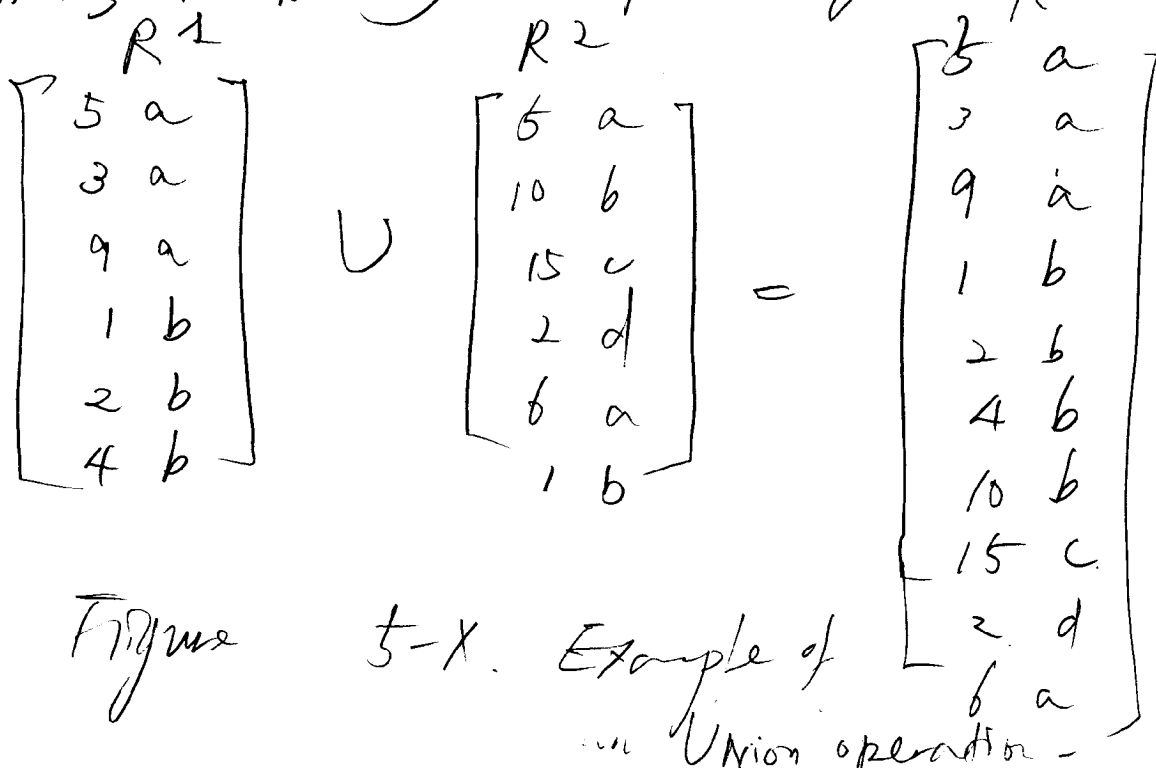 R 1 R 2
5 a
3 a
9 a
1 b
2 b
4 b
∪
5 a
10 b
15 c
2 d
6 a
1 b
=
5 a
3 a
9 a
1 b
2 b
4 b
10 b
15 c
2 d
6 a
Figure 5-X. Example of
Union operation-